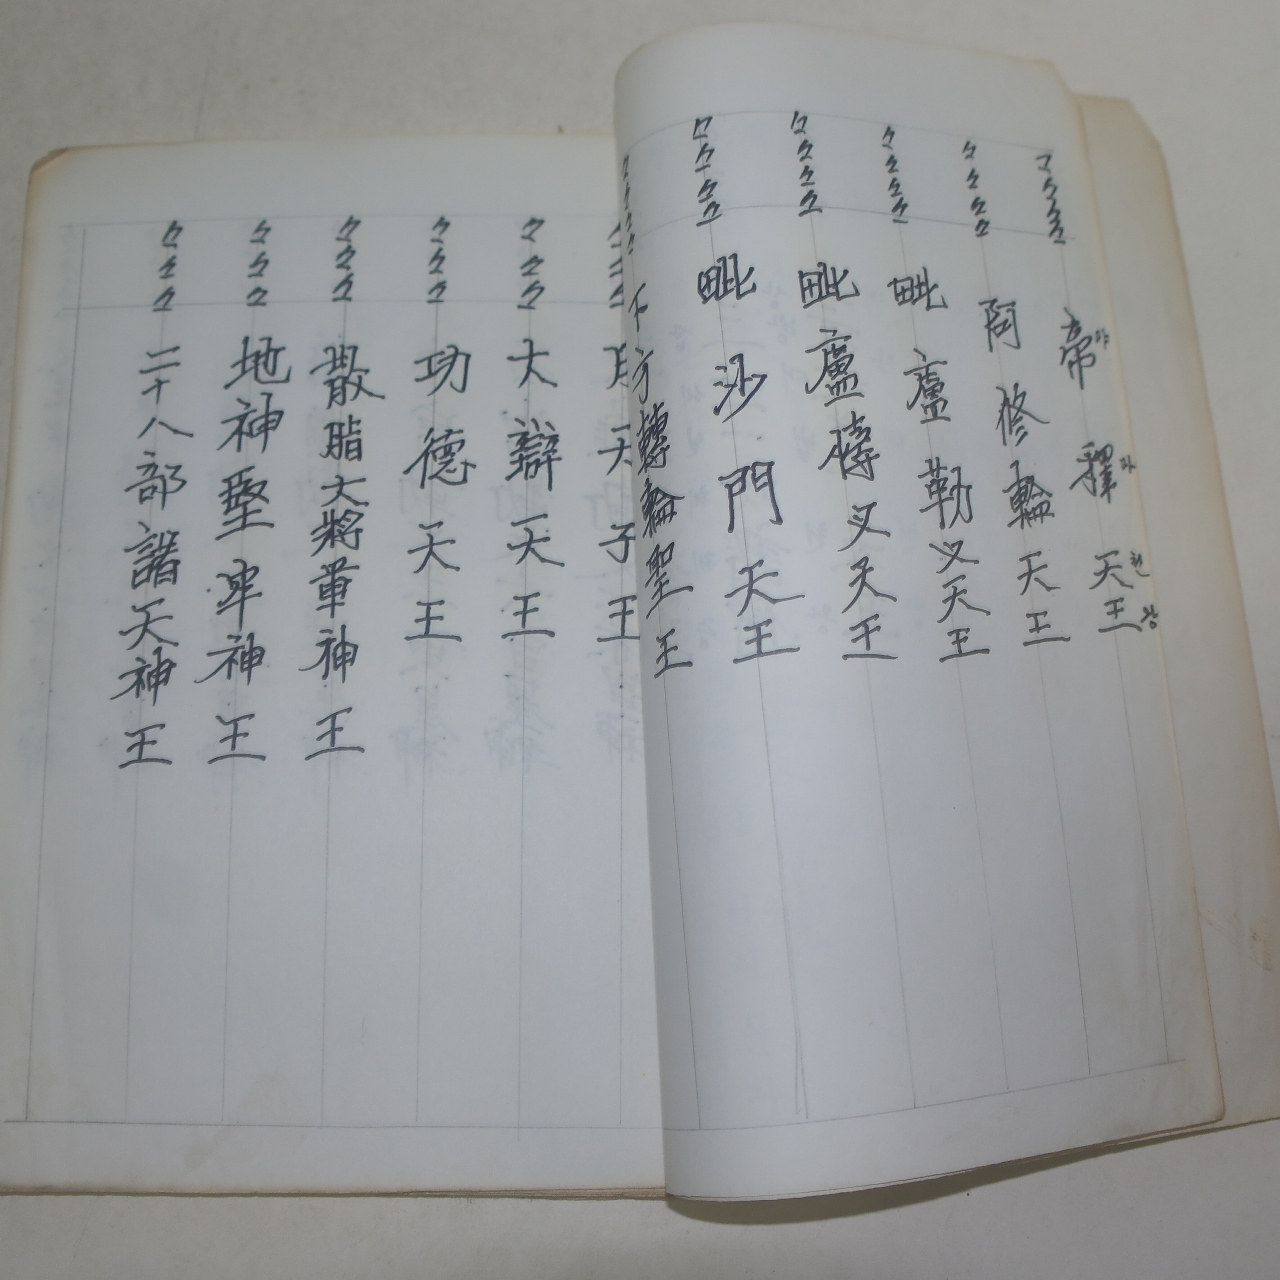 々々々々 帝釋天王 야 다 천 왕
々々々々 阿修輪天王
々々々々 毗盧勒义天王
々々々々 毗盧博义天王
々々々々 毗沙門天王
々々々々 下方轉輪聖王
々々々 天子王
々々々 大辯天王
々々々 功德天王
々々々 散脂大將軍神王
々々々 地神堅牢神王
々々々 二十八部諸天神王